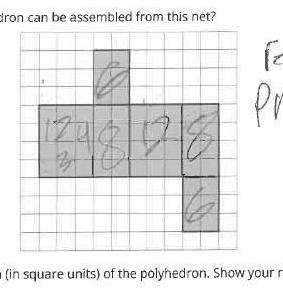 dron can be assembled from this net?
6
12 4 8 12 8
3
6
(in square units) of the polyhedron. Show your r